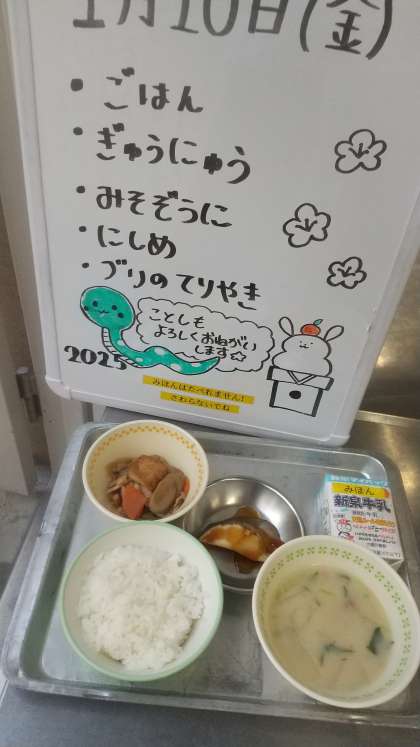 1月10日(金)
・ごはん
・ぎゅうにゅう
・みそぞうに
・にしめ
・ブリのてりやき
2025
ことしも
よろしくおねがい
します☆
みほんはたべれません!
さわらないでね
みほん
牛乳